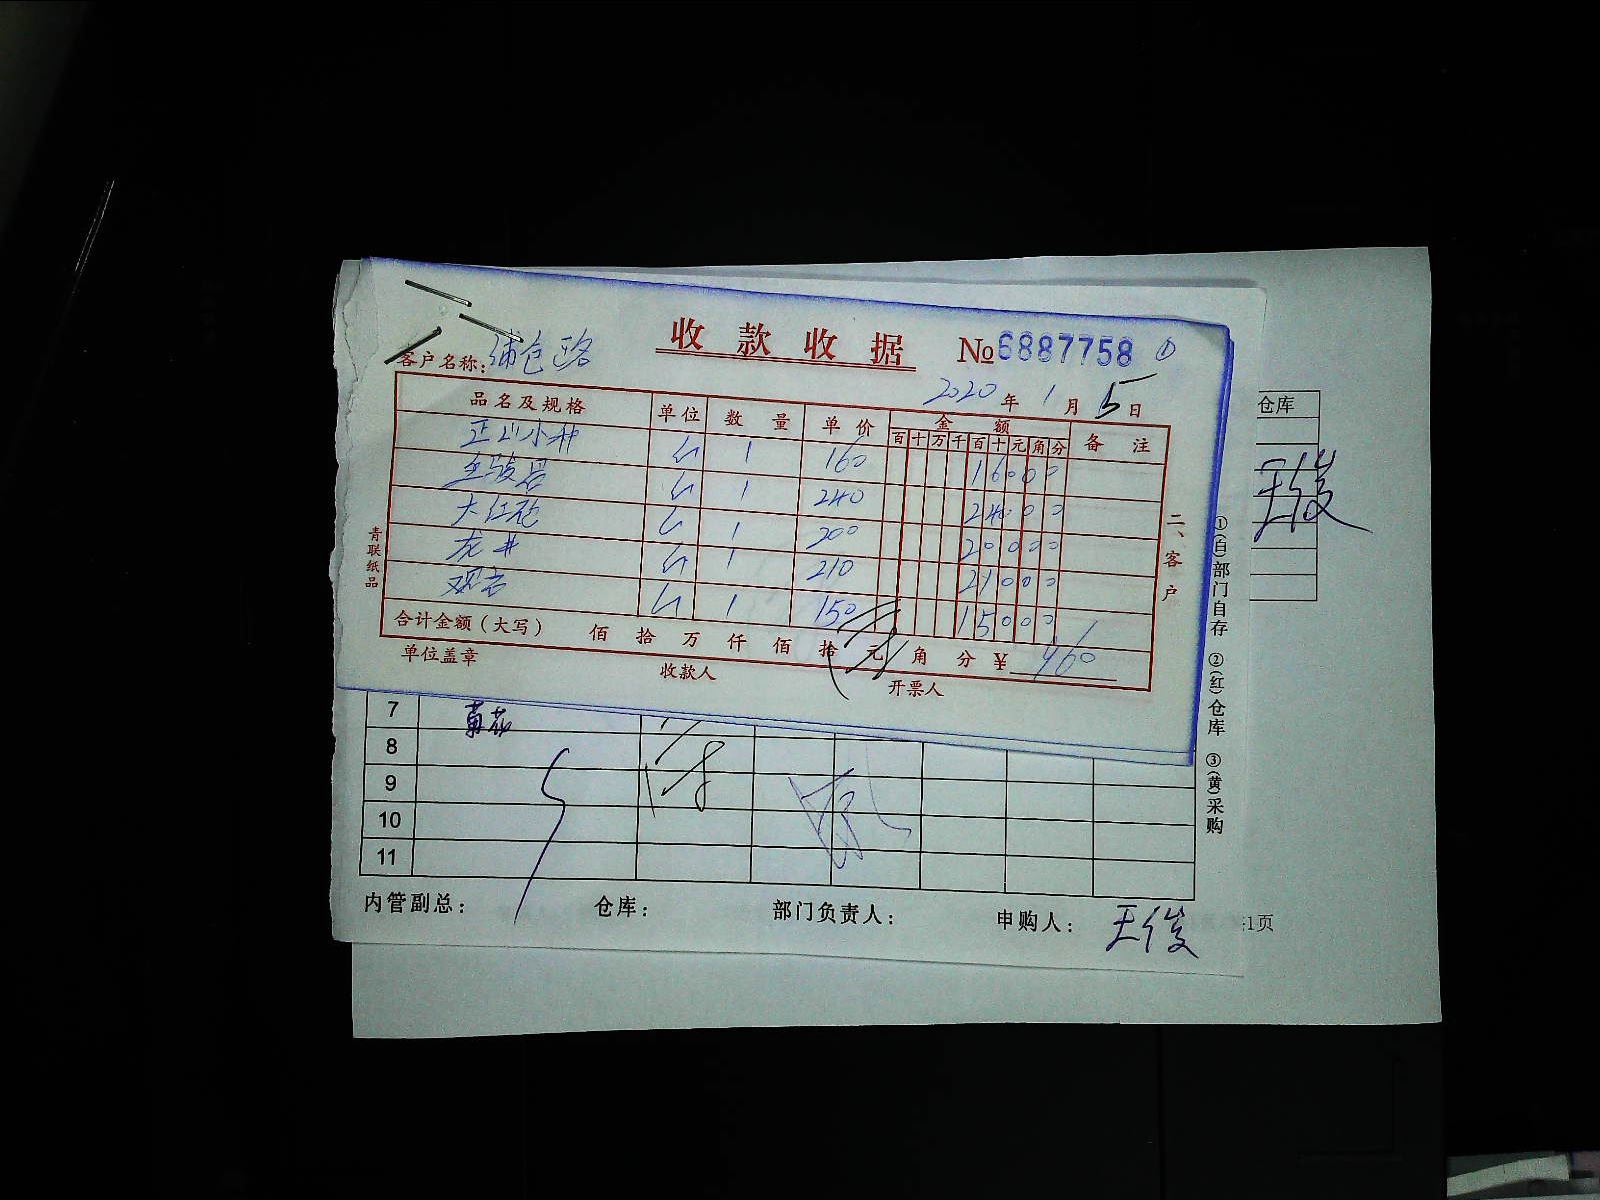 收款收据 №6887758 ①
客户名称:
2020年1月5日
品名及规格 单位 数量 单价 金额 备注
百十万千百十元角分
正山小种 1 160 16000
金骏眉 1 240 24000
大红袍 1 200 20000
龙井 1 210 21000
观音 1 150 15000
合计金额(大写) 佰 拾 万 仟 佰 拾 元 角 分 ¥ 960
单位盖章 收款人 开票人
青联纸品
二、客户
仓库
王俊
①(白)部门自存 ②(红)仓库 ③(黄)采购
7 菊花
8
9
10
11
内管副总: 仓库: 部门负责人: 申购人: 王俊
1页